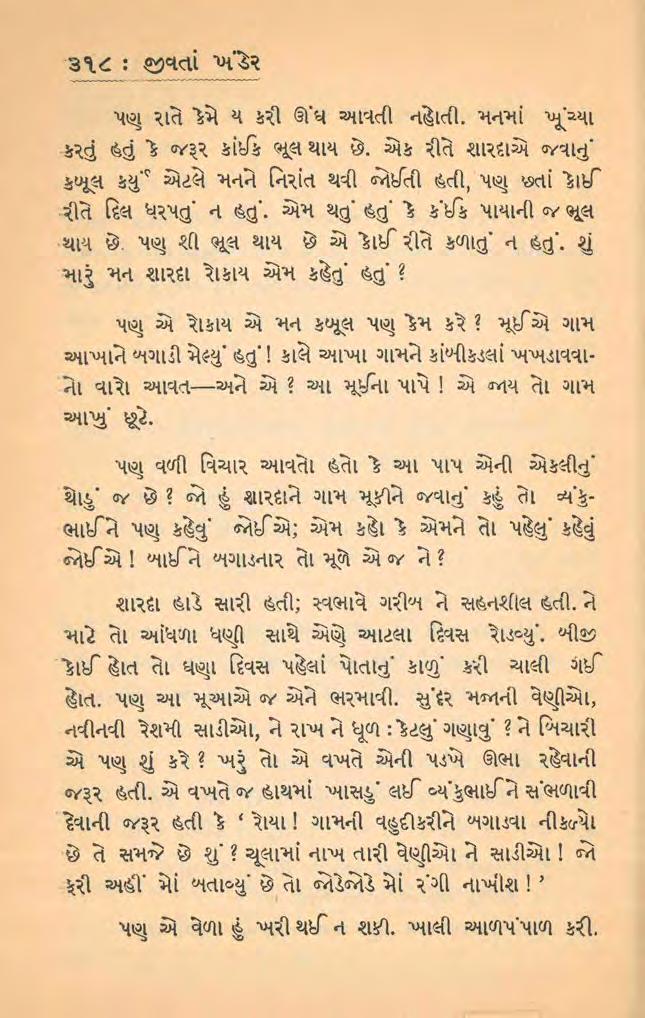 ૩૧૮ : જીવતાં ખંડેર
પણ રાતે કેમે ય કરી ઊંઘ આવતી નહોતી. મનમાં ખૂંચ્યા
કરતું હતું કે જરૂર કાંઈક ભૂલ થાય છે. એક રીતે શારદાએ જવાનું
કબૂલ કર્યું એટલે મનને નિરાંત થવી જોઈતી હતી, પણ છતાં કોઈ
રીતે દિલ ધરપતું ન હતું. એમ થતું હતું કે કંઈક પાયાની જ ભૂલ
થાય છે. પણ શી ભૂલ થાય છે એ કોઈ રીતે કળાતું ન હતું. શું
મારું મન શારદા રોકાય એમ કહેતું હતું ?
પણ એ રોકાય એ મન કબૂલ પણ કેમ કરે ? મૂઈએ ગામ
આખાને બગાડી મેલ્યું હતું! કાલે આખા ગામને કાંબીકડલાં ખખડાવવા-
નો વારો આવત—અને એ ? આ મૂઈના પાપે ! એ જાય તો ગામ
આખું છૂટે.
પણ વળી વિચાર આવતો હતો કે આ પાપ એની એકલીનું
થોડું જ છે ? જો હું શારદાને ગામ મૂકીને જવાનું કહું તો વ્યંકુ-
ભાઈને પણ કહેવું જોઈએ; એમ કહો કે એમને તો પહેલું કહેવું
જોઈએ ! બાઈને બગાડનાર તો મૂળે એ જ ને ?
શારદા હાડે સારી હતી; સ્વભાવે ગરીબ ને સહનશીલ હતી. ને
માટે તો આંધળા ધણી સાથે એણે આટલા દિવસ રોડવ્યું. બીજી
કોઈ હોત તો ઘણા દિવસ પહેલાં પોતાનું કાળું કરી ચાલી ગઈ
હોત. પણ આ મૂઆએ જ એને ભરમાવી. સુંદર મજાની વેણીઓ,
નવીનવી રેશમી સાડીઓ, ને રાખ ને ધૂળ : કેટલું ગણાવું ? ને બિચારી
એ પણ શું કરે ? ખરું તો એ વખતે એની પડખે ઊભા રહેવાની
જરૂર હતી. એ વખતે જ હાથમાં ખાસડું લઈ વ્યંકુભાઈને સંભળાવી
દેવાની જરૂર હતી કે ‘ રોયા ! ગામની વહુદીકરીને બગાડવા નીકળ્યો
છે તે સમજે છે શું ? ચૂલામાં નાખ તારી વેણીઓ ને સાડીઓ ! જો
ફરી અહીં મોં બતાવ્યું છે તો જોડેજોડે મોં રંગી નાખીશ ! ’
પણ એ વેળા હું ખરી થઈ ન શકી. ખાલી આળપંપાળ કરી.